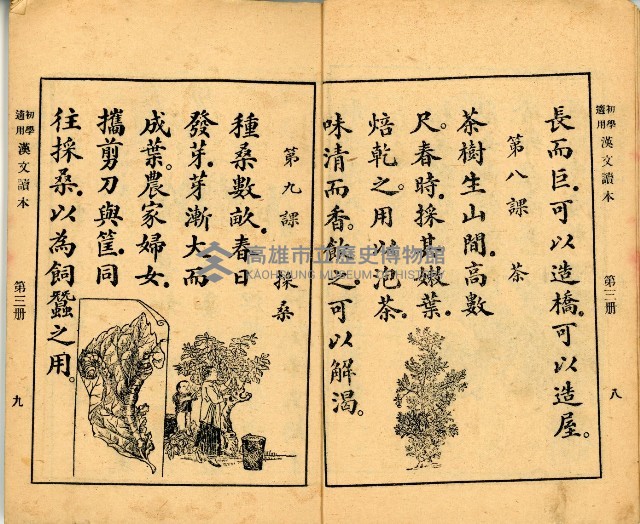 初學適用 漢文讀本 第三册 八
長而巨。可以造橋。可以造屋。
第八課 茶
茶樹生山間。高數
尺。春時。採其嫩葉。
焙乾之。用以泡茶。
味清而香。飲之。可以解渴。
第九課 採桑
種桑數畝。春日
發芽。芽漸大而
成葉。農家婦女。
攜剪刀與筐。同
往採桑。以為飼蠶之用。
初學適用 漢文讀本 第三册 九
高雄市立歷史博物館
KAOHSIUNG MUSEUM OF HISTORY